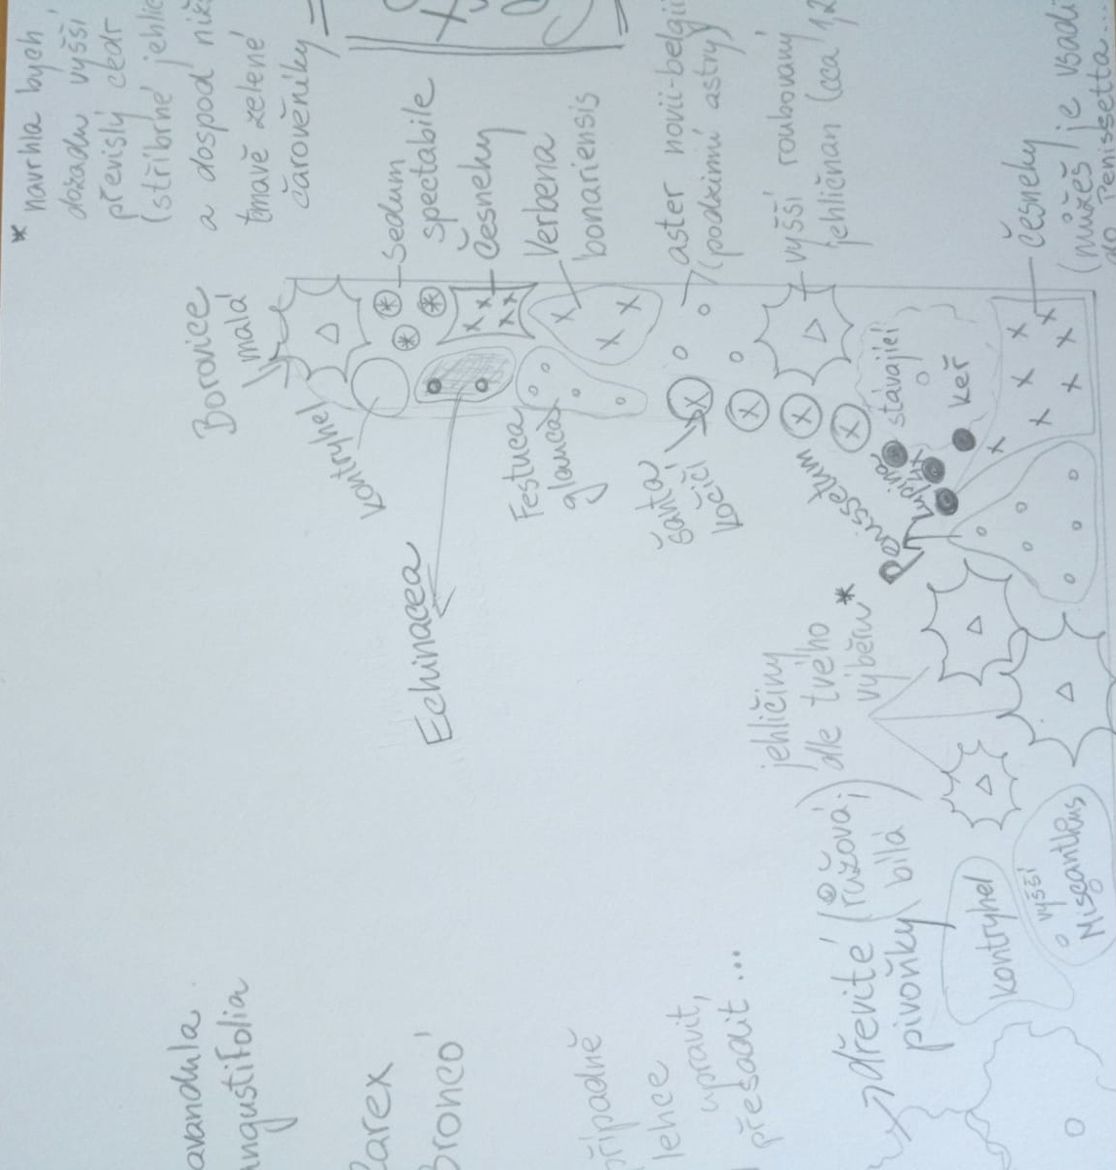 * navrhla bych
dozadu vyšší
převislý cedr
(stříbrné
a dospod
tmavě zelené
čarověníky
Borovice
malá
Sedum
spectabile
Česneky
Verbena
bonariensis
aster novii-belgii
(podzimní astry)
vyšší roubovaný
jehličnan (cca 1,2
česneky
(můžeš je
do Penissetta...
kontryhel
Echinacea
Festuca
glauca
šanta
kočičí
Penissetum
Lupina
stávající
keř
jehličiny
dle tvého
výběru *
dřevité (růžová;)
pivoňky (bílá)
kontryhel
vyšší
Miscanthus
avandula
ngustifolia
Carex
Bronco'
případně
lehce
upravit,
přesadit...